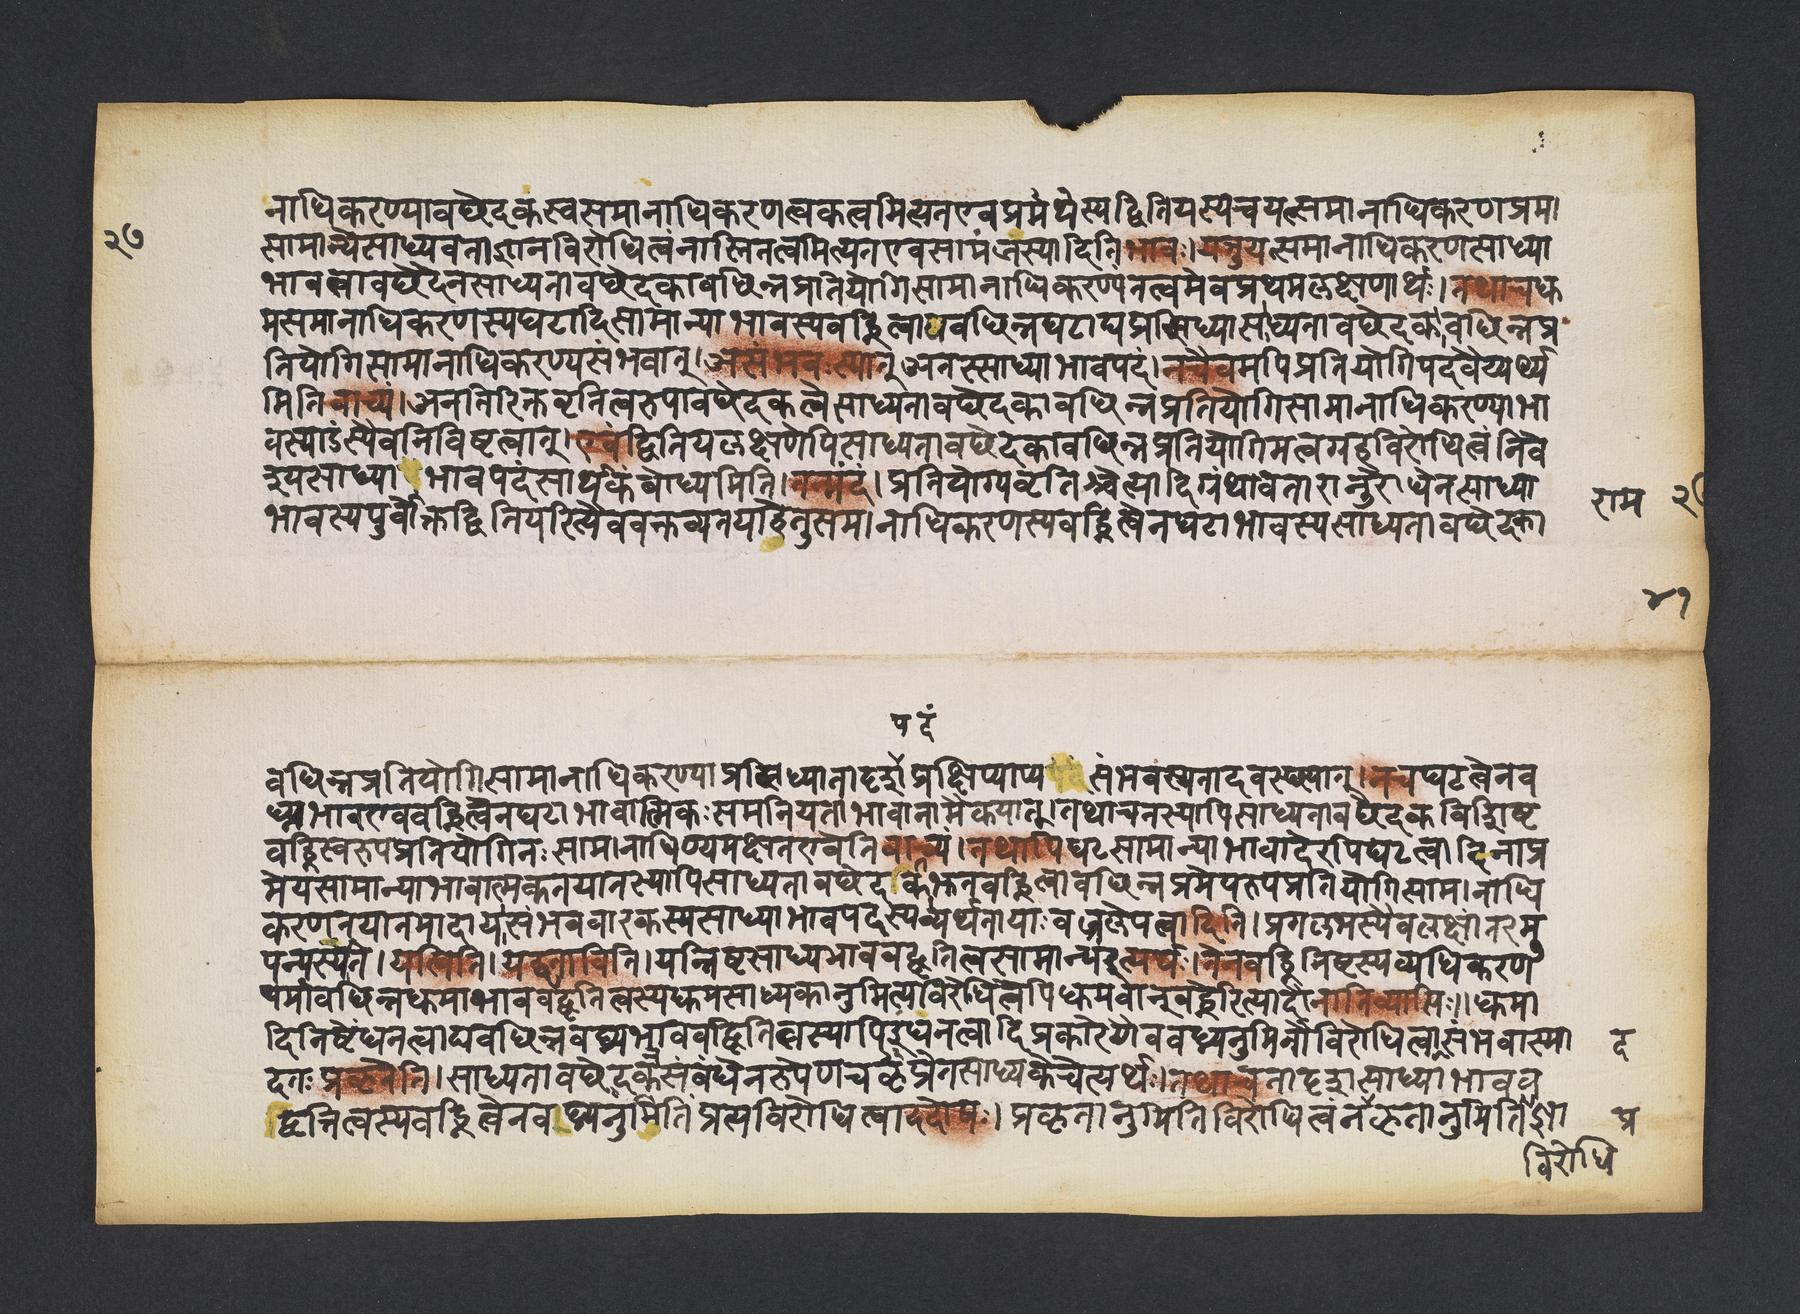 २७
नाधिकरण्यावछेदकस्वसमानाधिकरणत्वकत्वमित्यतएवप्रमेयेस्यद्वितियस्यचयत्समानाधिकरणप्रमा
सामान्येसाध्यवताज्ञानविरोधित्वंनास्तितत्वमित्यतएवसामंजस्यादितिभावः।यत्तुयत्समानाधिकरणसाध्या
भावत्वावछेदेनसाध्यतावछेदकावछिन्नप्रतियोगिसामानाधिकरण्यंतत्वमेवप्रथमलक्षणार्थः।तथाचधू
मसमानाधिकरणस्यघटादिसामान्याभावस्यवह्नित्वाद्यवछिन्नघटाद्यप्रसिध्यासाध्यतावछेदकावछिन्नप्र
तियोगिसामानाधिकरण्यसंभवात्।असंभवःस्यात्अतस्साध्याभावपदं।नचैवमपिप्रतियोगिपदवैयर्थ्य
मितिवाच्यं।अनतिरिक्तवृत्तित्वरुपावछेदकत्वेसाध्यतावछेदकावछिन्नप्रतियोगिसामानाधिकरण्याभा
वस्याऽस्यैवनिविष्टत्वात्।एवंद्वितियलक्षणेपिसाध्यतावछेदकावछिन्नप्रतियोगिमत्वग्रहविरोधित्वंनिवे
श्यसाध्याभावपदंसार्थकंबोध्यमिति।तन्मंदं।प्रतियोग्यवृत्तिश्चेत्यादिग्रंथावतारानुरोधेनसाध्या
भावस्यपुर्वोक्तद्वितियरित्यैववक्तव्यतयाहेतुसमानाधिकरणस्यवह्नित्वेनघटाभावस्यसाध्यतावछेदका
राम २७
४१
पदं
वछिन्नप्रतियोगिसामानाधिकरण्याप्रसिध्यातादृशप्रक्षिप्याप्यसंभवस्यतादवस्थ्यात्।नचघटत्वेनव
ह्न्यभावएववह्नित्वेनघटाभावात्मिकःसमनियताभावानामैक्यात्।तथाचतस्यापिसाध्यतावछेदकविशिष्ट
वह्निस्वरुपप्रतियोगिनःसामानाधिण्यमक्षतएवेतिवाच्यं।तथापिघटसामान्याभावादेरपिघटत्वादिनाप्र
मेयसामान्याभावात्मकतयातस्यापिसाध्यतावछेदकिभूतवह्नित्वावछिन्नप्रमेयरुपप्रतियोगिसामानाधि
करणतयातमादायासंभववारकस्यसाध्याभावपदस्यव्यर्थतायाःवज्रलेपत्वादिति।प्रगल्भस्यैवलक्षणांतरमु
पन्यस्यति।यत्विति।यद्वृत्ताविति।यन्निष्टसाध्यभाववद्वृत्तित्वसामान्यइत्यर्थः।तेनवह्निनिष्टस्यव्यधिकरण
धर्मावछिन्नधूमाभाववद्वृत्तित्वस्यधूमसाध्यकानुमित्यविरोधित्वेपिधूमवान्वह्नेरित्यादौनातिव्याप्तिः॥धूमा
दिनिष्टेंधनत्वाद्यवछिन्नवह्न्यभाववद्वृत्तित्वस्यापिइंधनत्वादिप्रकारेणैववह्न्यनुमितौविरोधित्वासंभवास्या
द
दतःप्रकृतेति।साध्यतावछेदकसंबंधेनरुपेणचप्रकृतसाध्यकेचेत्यर्थः।तथाचतादृशसाध्याभावव
द्वृत्तित्वस्यवह्नित्वेनवह्न्यनुमितिंप्रत्यविरोधित्वाददोषः।प्रकृतानुमितिविरोधित्वंप्रकृतानुमितिज्ञा
प्र
विरोधि